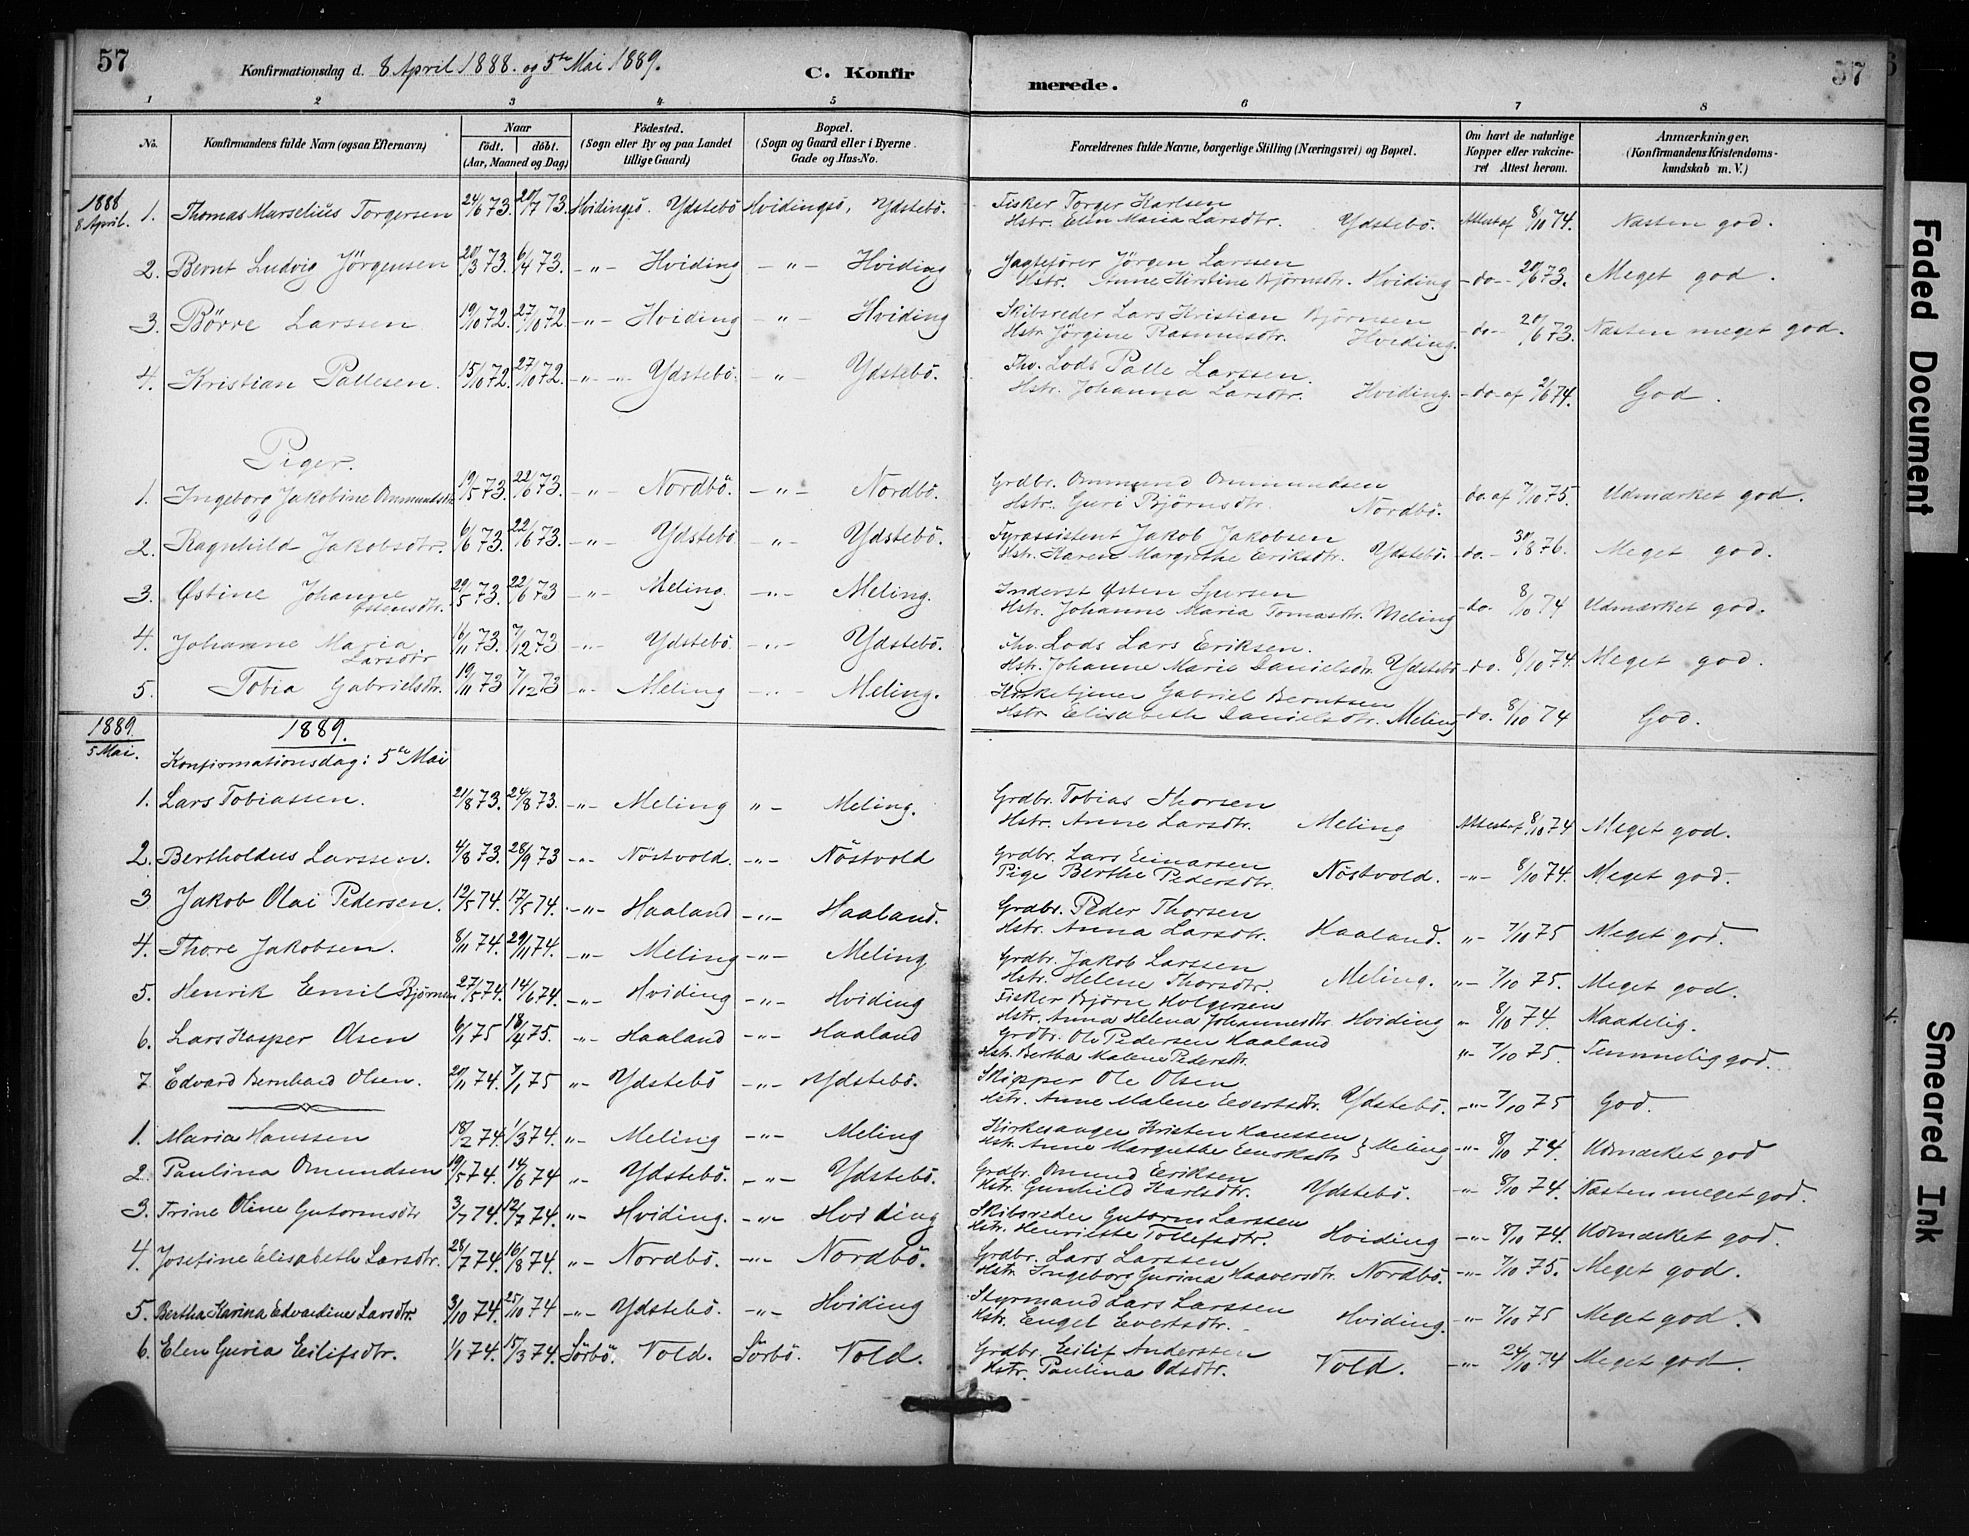 57
Konfirmationsdag d. 8 April 1888. og 5te Mai 1889. C. Konfirmerede. 57
1 2 3 4 5 6 7 8
No. Konfirmandens fulde Navn (ogsaa Efternavn) Naar födt. döbt. (Aar, Maaned og Dag) Födested. (Sogn eller By og paa Landet tillige Gaard) Bopæl. (Sogn og Gaard eller i Byerne Gade og Hus-No. Forældrenes fulde Navne, borgerlige Stilling (Næringsvei) og Bopæl. Om havt de naturlige Kopper eller vakcineret Attest herom. Anmærkninger. (Konfirmandens Kristendomskundskab m. V.)
1888 8 April.
1. Thomas Marselius Torgersen 24/6 73. 20/7 73. Hvidingsö. Ydstebö Hvidingsö, Ydstebö. Fisker Torger Karlsen Hstr. Elen Maria Larsdtr. Ydstebö. Attest af 8/10 74. Næsten god.
2. Bernt Ludvig Jörgensen 20/3 73. 6/4 73. -"- Hviding -"- Hviding Jagtefører Jörgen Larssen Hstr. Anne Kirstine Bjørnsdtr. Hviding -do- 20/6 73. Meget god.
3. Börre Larssen 19/10 72. 27/10 72. -"- Hviding -"- Hviding Skibsreder Lars Kristian Bjørnsen Hstr. Jörgine Rasmusdtr. Hviding. -do- 20/6 73. Næsten meget god.
4. Kristian Pallesen. 15/10 72. 27/10 72. -"- Ydstebö. -"- Ydstebö. Fhv. Lods Palle Larssen. Hstr. Johanna Larsdtr. Hviding. -do- af 2/6 74. God.
Piger.
1. Ingeborg Jakobine Ommundsdtr 19/5 73. 22/6 73. -"- Nordbö. -"- Nordbö. Grdbr. Ommund Ommundsen Hstr. Guri Bjørnsdtr. Nordbö. do af 7/10 75. Udmærket god.
2. Ragnhild Jakobsdtr. 6/6 73. 22/6 73. -"- Ydstebö -"- Ydstebö. Fyrassistent Jakob Jakobsen Hstr. Karen Margrethe Eriksdtr. Ydstebö. do. - 30/8 76. Meget god.
3. Østine Johanne Østensdtr. 20/5 73. 22/6 73 -"- Meling. -"- Meling. Inderst Østen Sjursen Hstr. Johanne Maria Tomasdtr. Meling do. 8/10 74 Udmærket god.
4. Johanne Maria Larsdtr 16/11 73. 7/12 73 -"- Ydstebö. -"- Ydstebö. Fhv. Lods Lars Eriksen. Hstr. Johanne Marie Danielsdtr. Ydstebö -do. 8/10 74. Meget god.
5. Tobia Gabrielsdtr. 19/11 73 7/12 73 -"- Meling -"- Meling. Kirketjener Gabriel Berntsen Hstr. Elisabeth Danielsdtr. Meling do. 8/10 74 God.
1889 5 Mai. 1889.
Konfirmationsdag: 5te Mai
1. Lars Tobiassen. 21/8 73. 24/8 73. -"- Meling "- Meling. Grdbr. Tobias Thorsen Hstr. Anne Larsdtr. Meling Attest af 8/10 74 Meget god.
2. Bertholdus Larssen. 4/8 73. 28/9 73 -"- Nöstvold. -"- Nöstvold Grdbr. Lars Einarsen Pige Berthe Pedersdtr. Nöstvold. -"- 8/10 74. Meget god.
3 Jakob Olai Pedersen. 12/5 74. 17/5 74. -"- Haaland -"- Haaland. Grdbr. Peder Thorsen Hstr. Anna Larsdtr. Haaland. "- 7/10 75 Meget god.
4. Thore Jakobsen. 8/11 74. 29/11 74. -"- Meling -"- Meling Grdbr. Jakob Larssen Hstr. Helene Thorsdtr. Meling. "- 7/10 75. Meget god.
5. Henrik Emil Bjørnsen 27/5 74. 14/6 74. -"- Hviding -"- Hviding Fisker Bjørn Holgersen Hstr. Anna Helena Johannesdtr. Hviding " 8/10 74. Maadelig.
6. Lars Kasper Olsen 6/1 75 18/4 75. -"- Haaland -"- Haaland Grdbr. Ole Pedersen Haaland Hstr. Bertha Malene Pedersdtr. "- 7/10 75. Temmelig god.
7 Edvard Bernhard Olsen. 20/11 74. 7/1 75 "- Ydstebö -"- Ydstebö. Skipper Ole Olsen Hstr. Anne Malene Evertsdtr. Ydstebö. -"- 7/10 75 God.
1. Maria Hanssen 18/2 74. 1/3 74. "- Meling -"- Meling Kirkesanger Kristen Hanssen Hstr. Anne Margrethe } Meling -"- 8/10 74. Udmærket god
2. Paulina Omundsen 19/5 74. 14/6 74 "- Ydstebö. -"- Ydstebö. Grdbr. Omund Eriksen Hstr. Gunhild Karlsdtr. Ydstebö. -"- 8/10 74. Næsten meget god.
3. Trine Oline Gutormsdtr 3/7 74. 12/7 74. "- Hviding. -"- Hviding Skibsreder Gutorm Larssen Hstr. Henriette Tollefsdtr. Hviding -"- 8/10 74. Udmærket god.
4. Josefine Elisabeth Larsdtr. 28/7 74. 16/8 74. "- Nordbö. -"- Nordbö. Grdbr. Lars Larssen Hstr. Ingeborg Gurina Haaversdtr. Nordbö. -"- 7/10 75. Meget god.
5. Bertha Karina Edvardine Larsdtr. 3/10 74. 25/10 74 "- Ydstebö. -"- Hviding Styrmand Lars Larssen Hstr. Engel Evertsdtr. Hviding. -"- 7/10 75 Meget god.
6. Elen Guria Eilifsdtr. 1/1 74. 15/3 74. Sörbö. Vold. Sörbö. Vold. Grdbr. Eilif Anderssen Hstr. Paulina Odsdtr. Vold. -"- 24/10 74 Meget god.
Faded Document
Smeared Ink